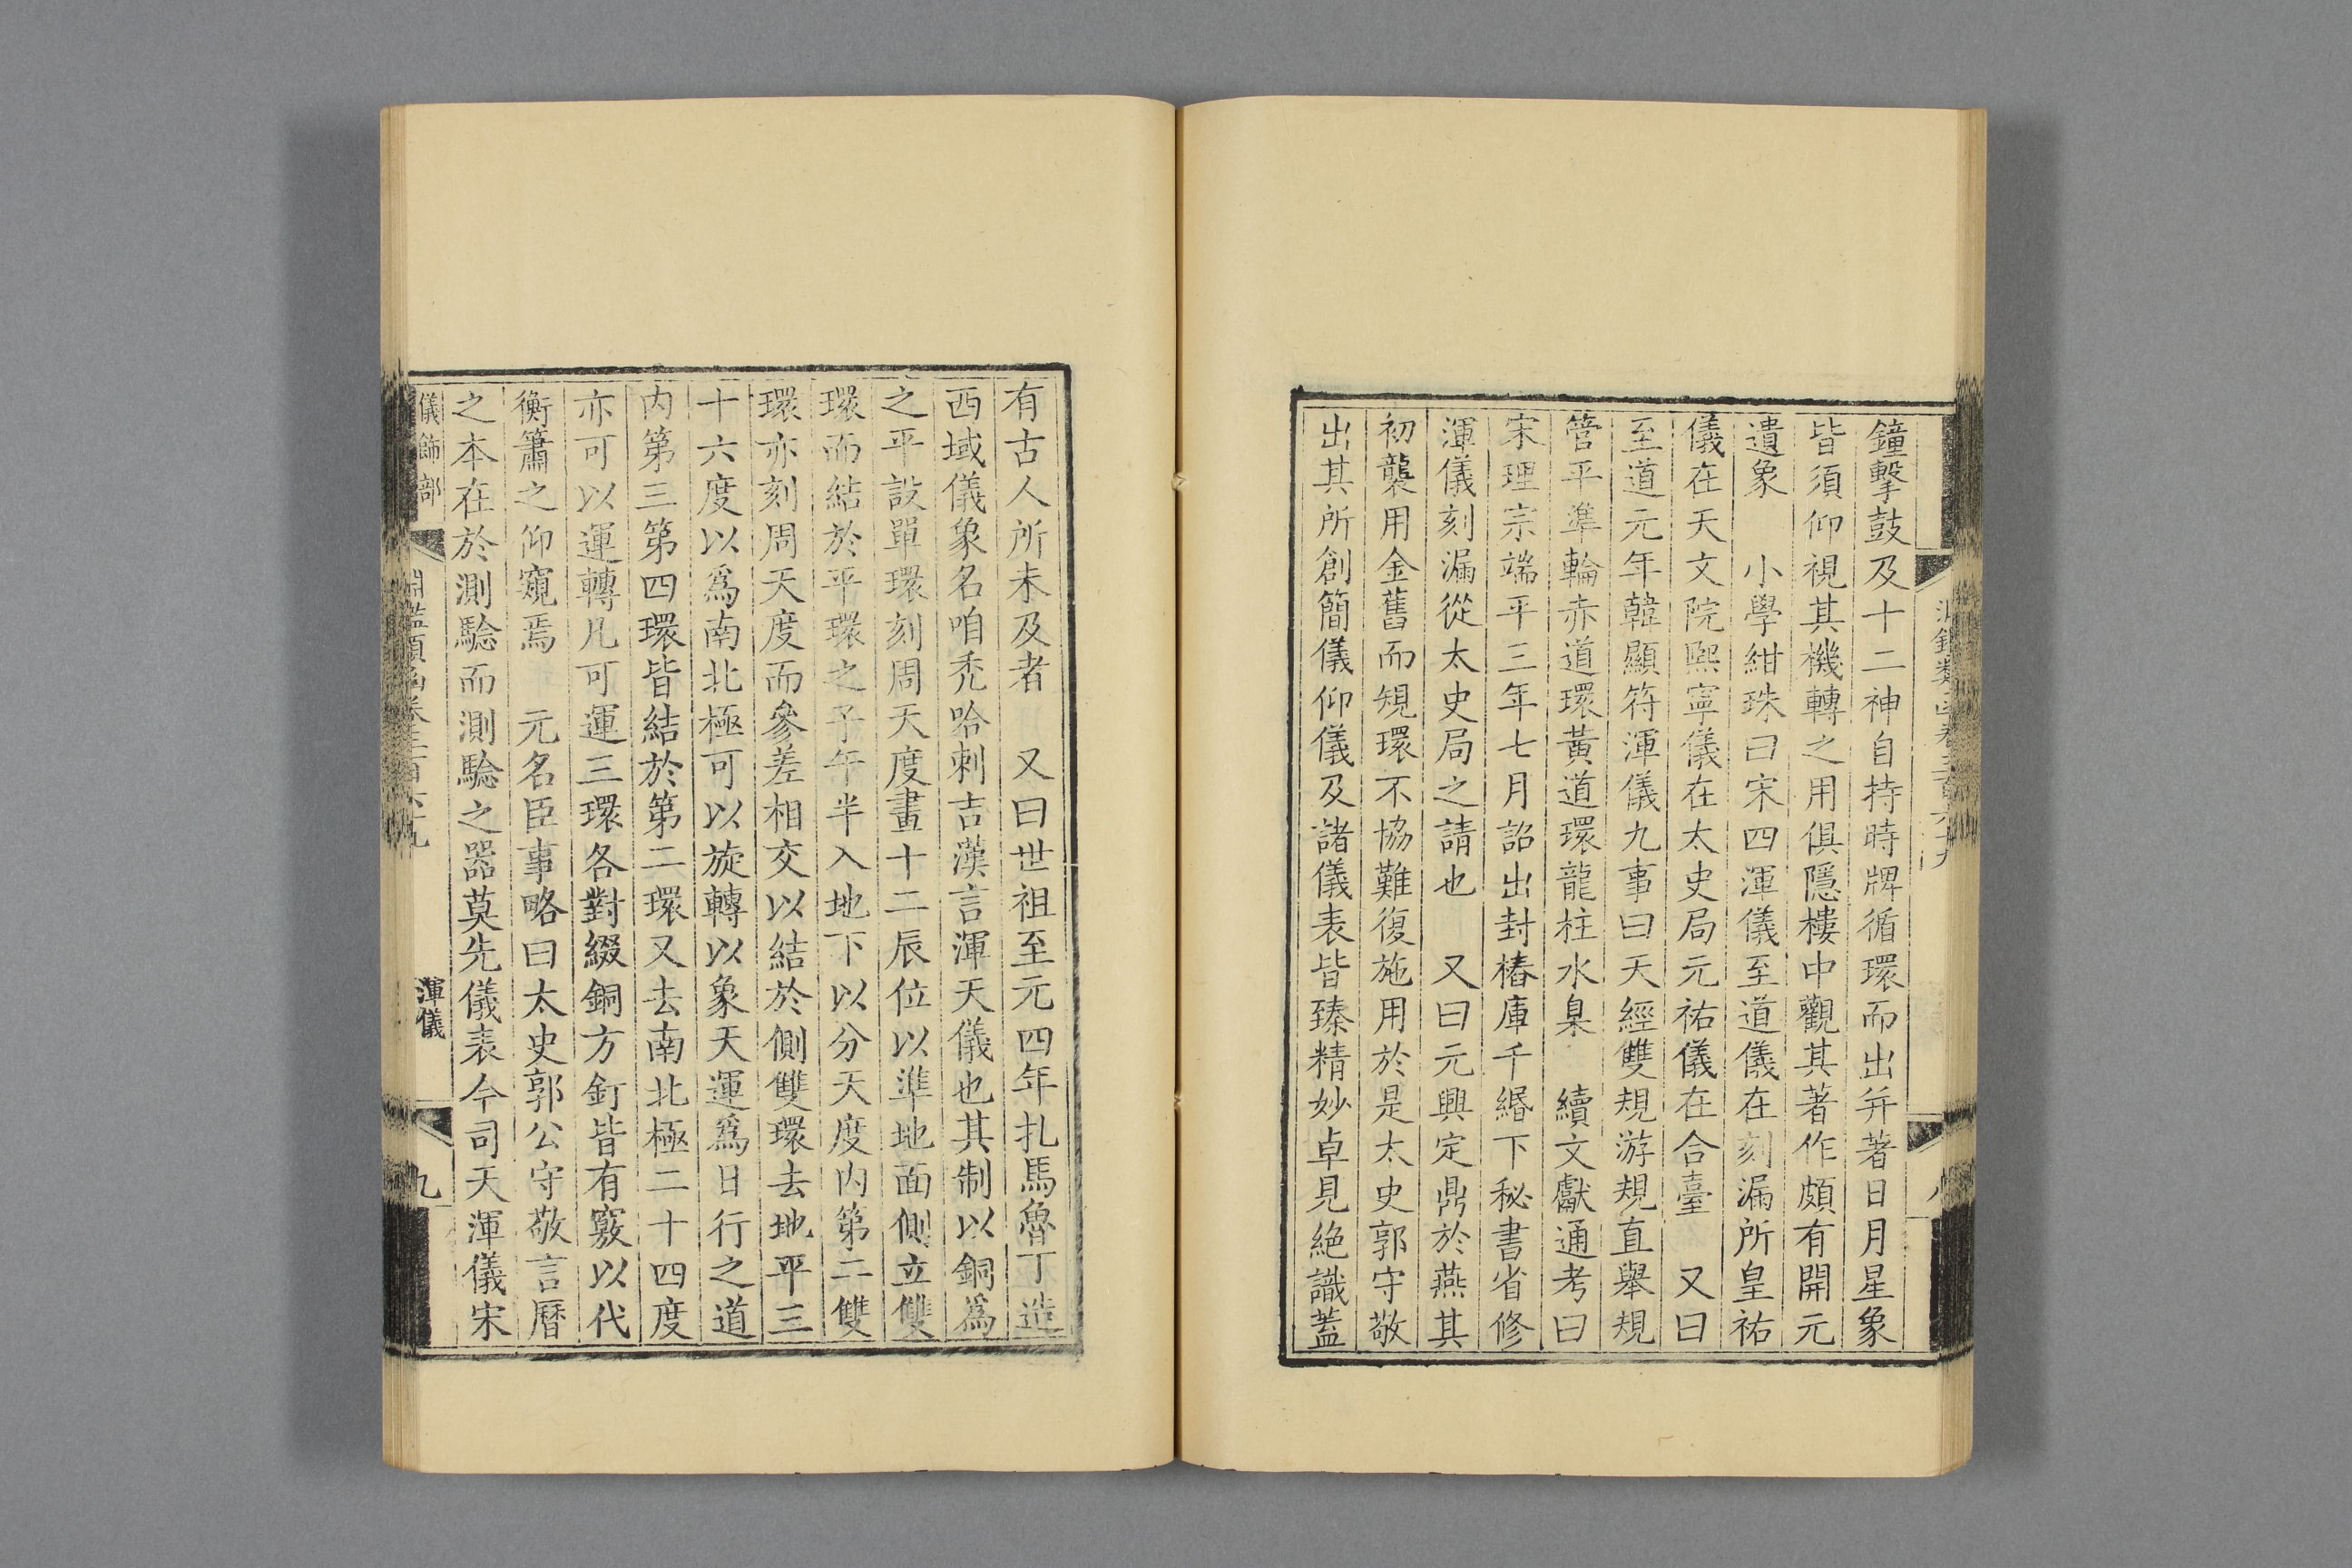 鐘擊鼓及十二神自持時牌循環而出并著日月星象
皆須仰視其機轉之用俱隱樓中觀其著作頗有開元
遺象　小學紺珠曰宋四渾儀至道儀在刻漏所皇祐
儀在天文院熙寧儀在太史局元祐儀在合臺　又曰
至道元年韓顯符渾儀九事曰天經雙規游規直舉規
管平準輪赤道環黃道環龍柱水臬　續文獻通考曰
宋理宗端平三年七月詔出封樁庫千緡下秘書省修
渾儀刻漏從太史局之請也　又曰元興定鼎於燕其
初襲用金舊而規環不協難復施用於是太史郭守敬
出其所創簡儀仰儀及諸儀表皆臻精妙卓見絕識蓋
有古人所未及者　又曰世祖至元四年扎馬魯丁造
西域儀象名咱禿哈剌吉漢言渾天儀也其制以銅爲
之平設單環刻周天度畫十二辰位以準地面側立雙
環而結於平環之子午半入地下以分天度內第二雙
環亦刻周天度而參差相交以結於側雙環去地平三
十六度以爲南北極可以旋轉以象天運爲日行之道
內第三第四環皆結於第二環又去南北極二十四度
亦可以運轉凡可運三環各對綴銅方釘皆有竅以代
衡簫之仰窺焉　元名臣事略曰太史郭公守敬言曆
之本在於測驗而測驗之器莫先儀表今司天渾儀宋
儀飾部
渾儀
九